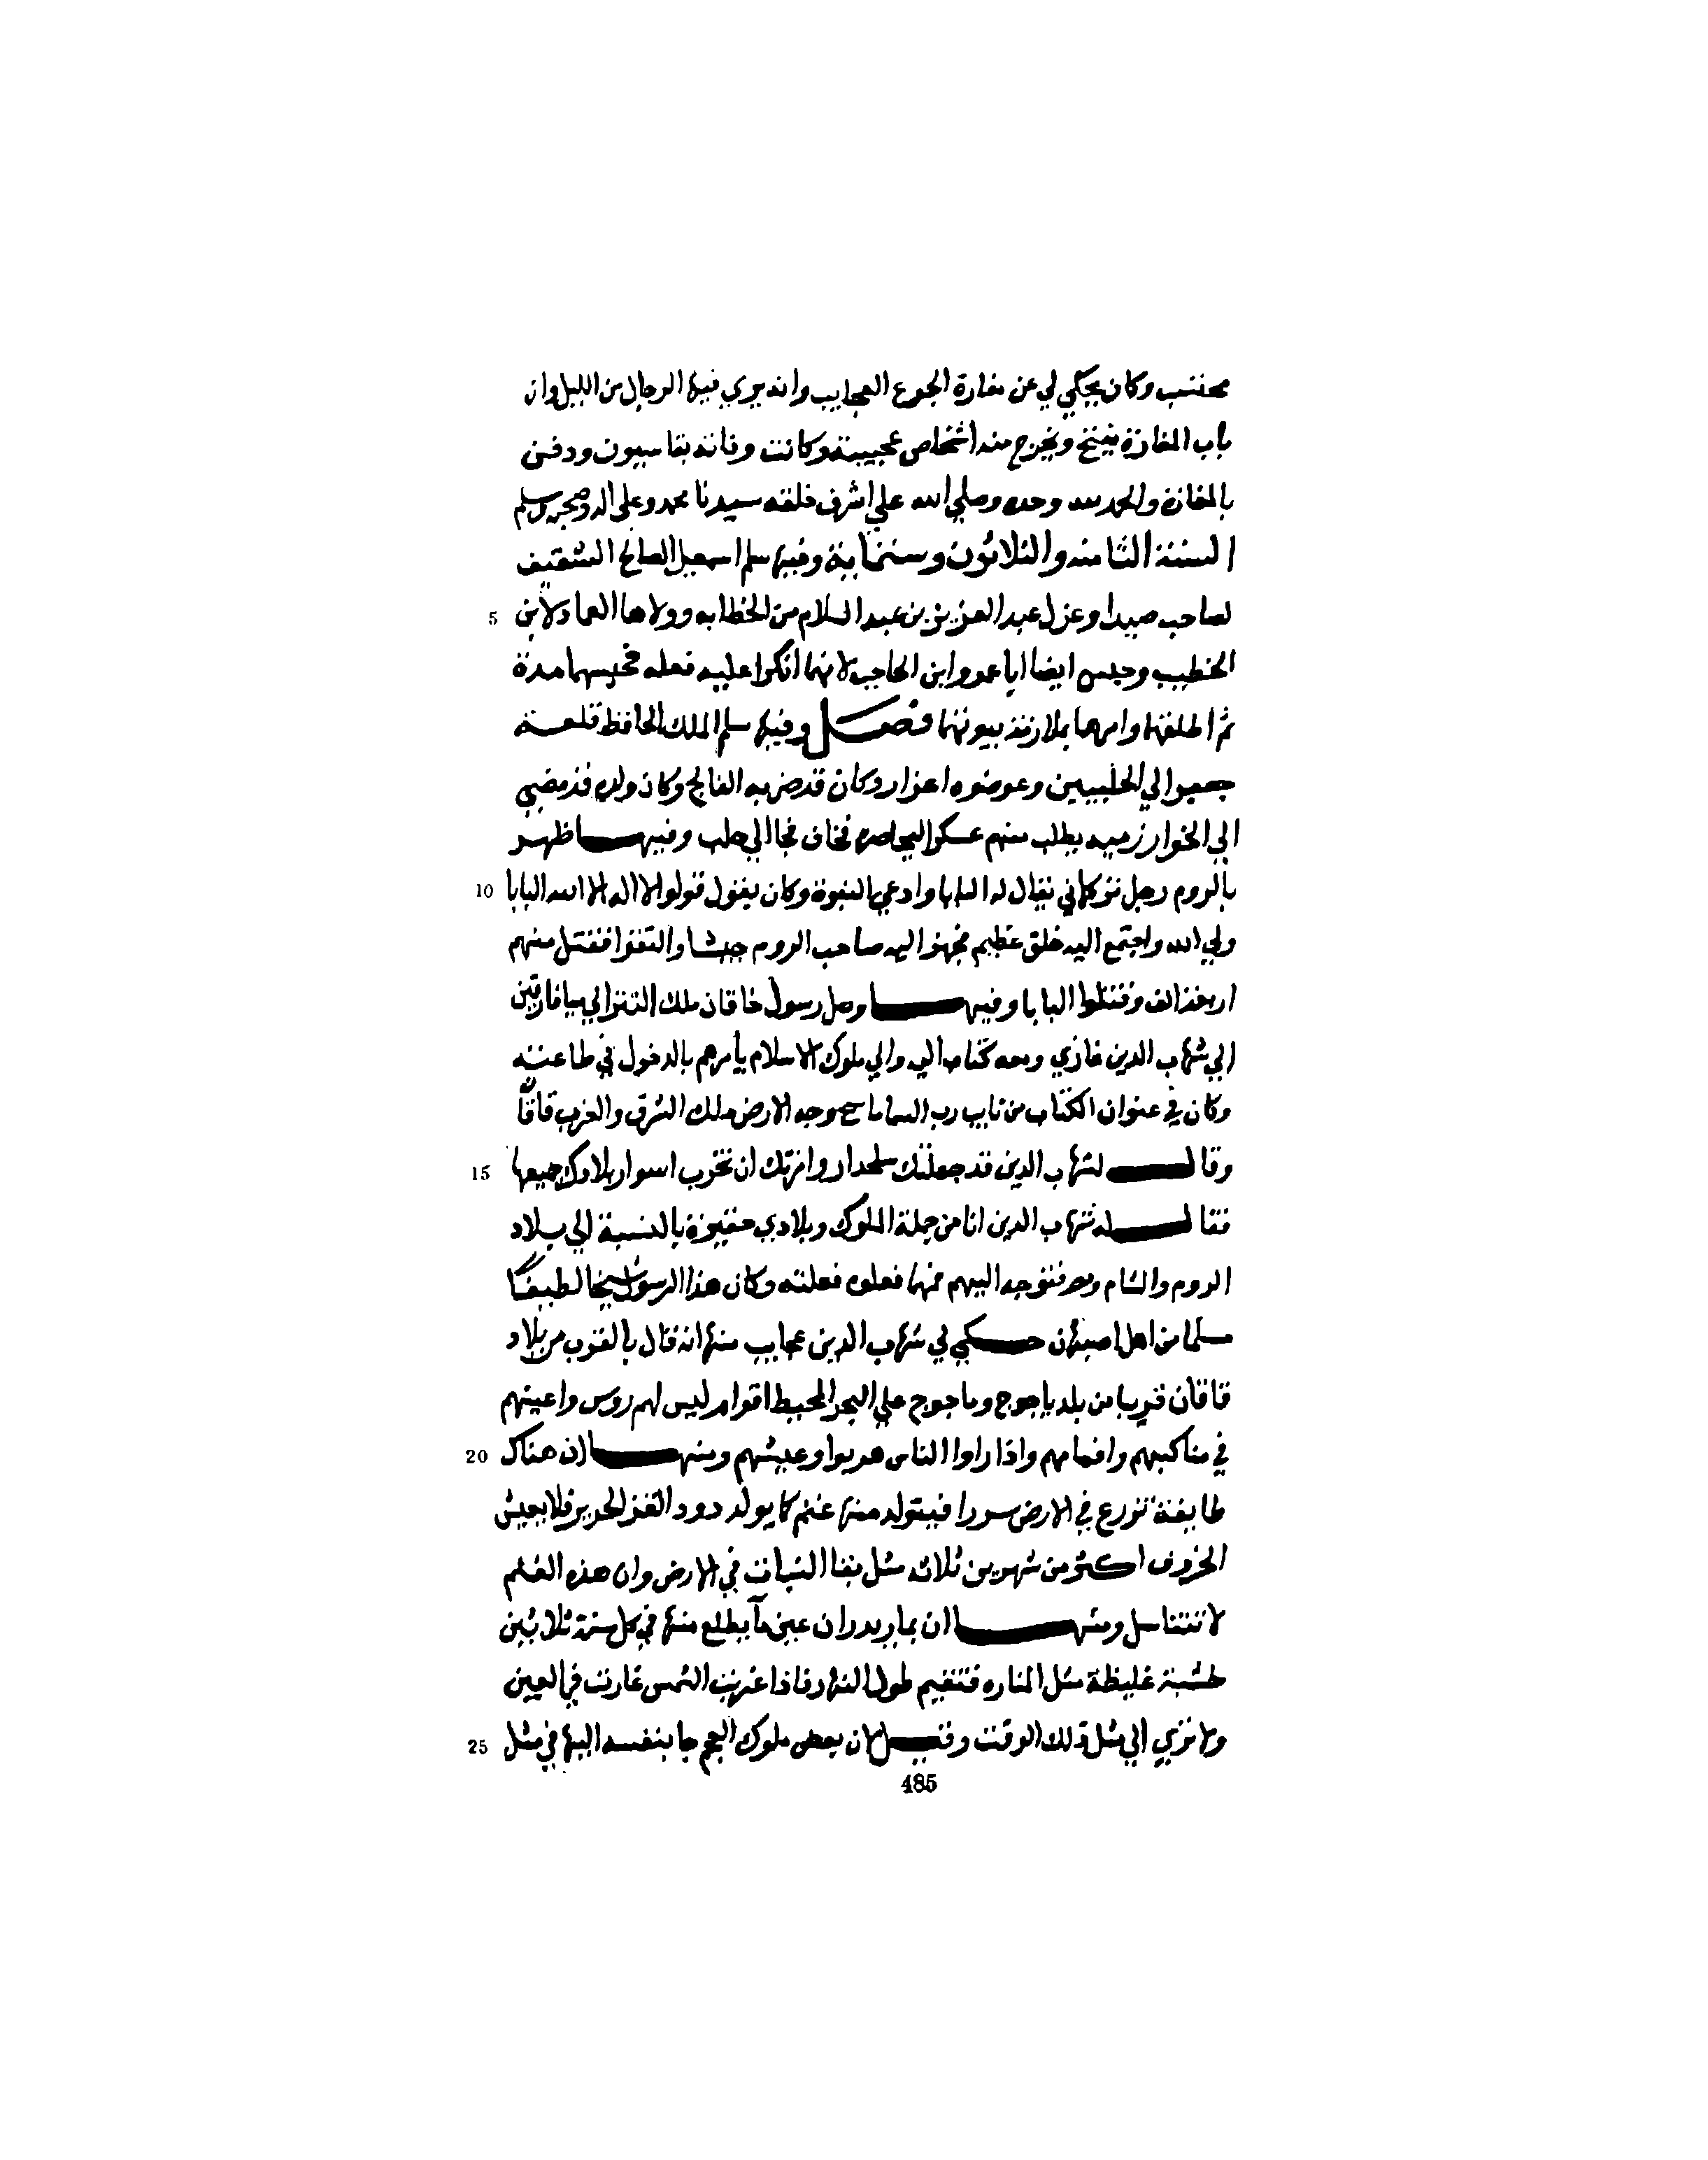 محتسب وكان يحكي لي عن مغارة الجوع العجايب وانه يري فيها الرجال من الليل وان
باب المغارة ينفتح ويخرج منه اشخاص عجيبة وكانت وفاته بقاسيون ودفن
بالمغارة والحمد لله وحده وصلي الله علي اشرف خلقه سيدنا محمد وعلى اله وصحبه وسلم
السنة الثامنه والثلاثون وستماية وفيها سلم اسمعيل الصالح الشقيف
5 لصاحب صيدا وعزل عبد العزيز بن عبد السلام من الخطابه وولاها العماد لابن
الخطيب وحبس ايضا ابا عمرو ابن الحاجب لانهما انكرا عليه فعله فحبسهما مدة
ثم اطلقهما وامرهما بملازمة بيوتهما فصل وفيها سلم الملك الحافظ قلعة
جعبر الي الحلبيين وعوضوه اعزاز وكان قد ضربه الفالج وكان ولده قد مضي
الي الخوارزميه يطلب منهم عسكرا ليحاصره فخاف فجا الي حلب وفيها ظهر
10 بالروم رجل تركماني يقال له البابا وادعي النبوة وكان يقول قولوا لا اله الا الله البابا
ولي الله واجتمع اليه خلق عظيم فجهز اليه صاحب الروم جيشا والتقوا فقتل منهم
اربعة الف وقتلوا البابا وفيها وصل رسول خاقان ملك التتر الي ميافارقين
الي شهاب الدين غازي ومعه كتاب اليه والي ملوك الاسلام يأمرهم بالدخول في طاعته
وكان في عنوان الكتاب من نايب رب السما ماسح وجه الارض ملك الشرق والغرب قاقان
15 وقال لشهاب الدين قد جعلتك سلحدار وامرتك ان تخرب اسوار بلادك جميعها
فقال له شهاب الدين انا من جملة الملوك وبلادي حقيرة بالنسبة الي بلاد
الروم والشام ومصر فتوجه اليهم فمهما فعلوه فعلته وكان هذا الرسول شيخا لطيفا
مسلما من اهل اصبهان حكي لي شهاب الدين عجايب منها انه قال بالقرب من بلاد
قاقان قريبا من بلد ياجوج وماجوج علي البحر المحيط اقوام ليس لهم روس واعينهم
20 في مناكبهم وافمامهم واذا راوا الناس هربوا وعيشهم ومنها ان هناك
طايفة تزرع في الارض بزرا فيتولد منها غنم كما يولد دود القز الحرير فلا يعيش
الخروف اكثر من شهرين ثلاثه مثل بقا النبات في الارض وان هذه الغنم
لا تتناسل ومنها ان بمازندران عين مآ يطلع منها في كل سنة ثلاثين
خشبة غليظة مثل المناره فتقيم طول النهار فاذا غربت الشمس غارت في العين
25 ولا تري الي مثل ذلك الوقت وقيل ان بعض ملوك العجم جا بنفسه اليها في مثل
485